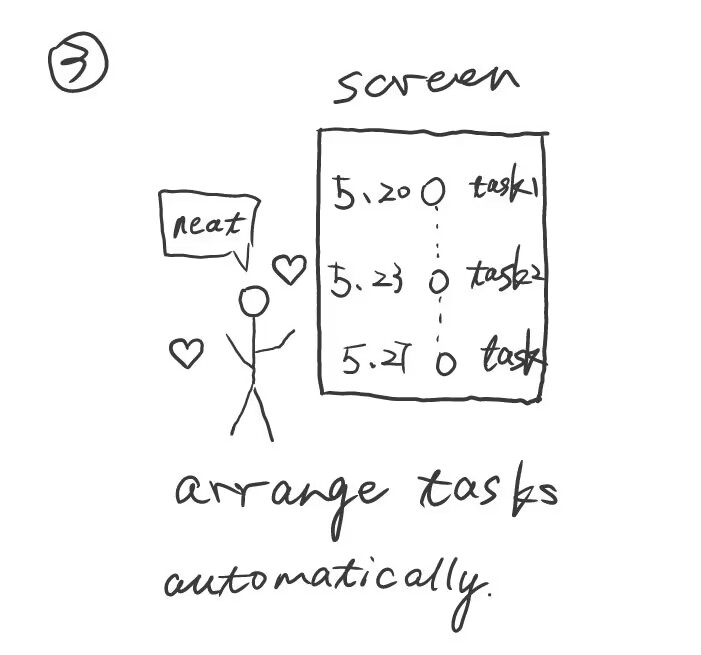 3
screen
5.20 task1
neat
5.23 task2
5.27 task
arrange tasks
automatically.